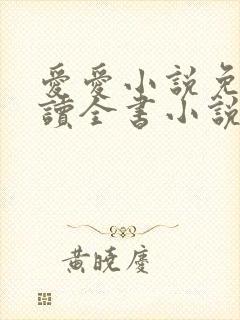 愛愛小説免
讀全書小説
黃曉慶